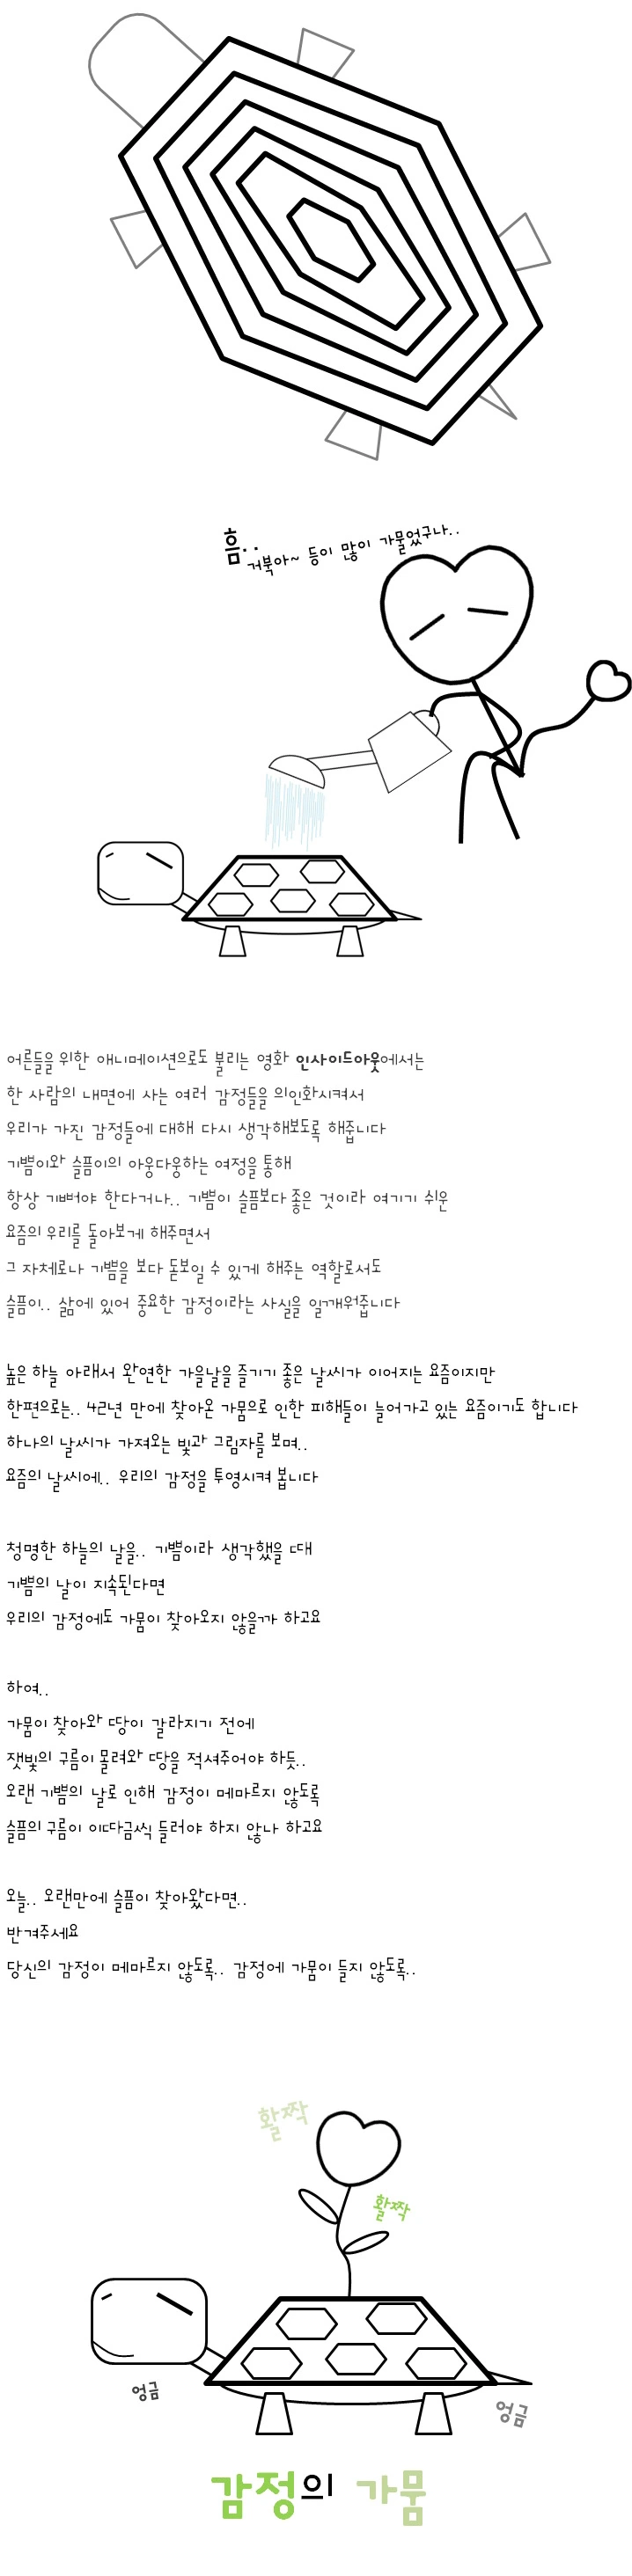 흠..
거북아~ 등이 많이 가물었구나..
어른들을 위한 애니메이션으로도 불리는 영화 인사이드아웃에서는
한 사람의 내면에 사는 여러 감정들을 의인화시켜서
우리가 가진 감정들에 대해 다시 생각해보도록 해줍니다
기쁨이와 슬픔이의 아웅다웅하는 여정을 통해
항상 기뻐야 한다거나.. 기쁨이 슬픔보다 좋은 것이라 여기기 쉬운
요즘의 우리를 돌아보게 해주면서
그 자체로나 기쁨을 보다 돋보일 수 있게 해주는 역할로서도
슬픔이.. 삶에 있어 중요한 감정이라는 사실을 일깨워줍니다
높은 하늘 아래서 완연한 가을날을 즐기기 좋은 날씨가 이어지는 요즘이지만
한편으로는.. 42년 만에 찾아온 가뭄으로 인한 피해들이 늘어가고 있는 요즘이기도 합니다
하나의 날씨가 가져오는 빛과 그림자를 보며..
요즘의 날씨에.. 우리의 감정을 투영시켜 봅니다
청명한 하늘의 날을.. 기쁨이라 생각했을 때
기쁨의 날이 지속된다면
우리의 감정에도 가뭄이 찾아오지 않을까 하고요
하여..
가뭄이 찾아와 땅이 갈라지기 전에
잿빛의 구름이 몰려와 땅을 적셔주어야 하듯..
오랜 기쁨의 날로 인해 감정이 메마르지 않도록
슬픔의 구름이 이따금씩 들러야 하지 않나 하고요
오늘.. 오랜만에 슬픔이 찾아왔다면..
반겨주세요
당신의 감정이 메마르지 않도록.. 감정에 가뭄이 들지 않도록..
활짝
활짝
엉금
엉금
감정의 가뭄